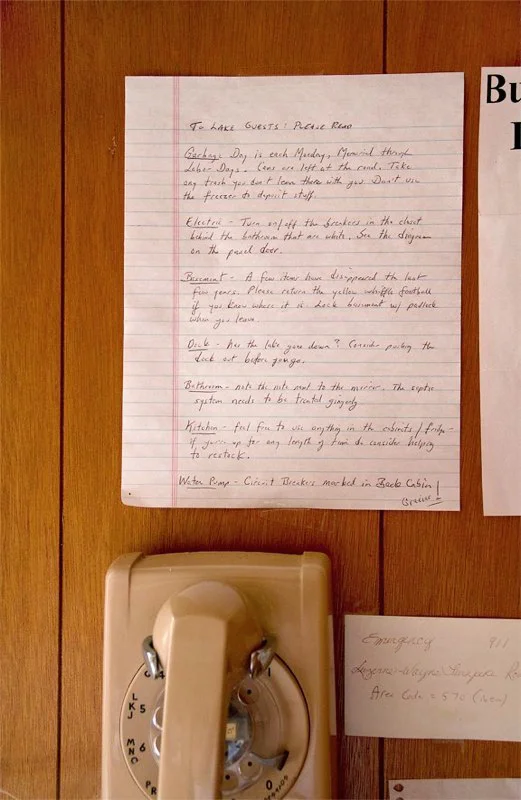 TO LAKE GUESTS: PLEASE READ
Garbage Day is each Monday, Memorial through
Labor Days. Cans are left at the road. Take
any trash you don't leave there with you. Don't use
the freezer to deposit stuff.
Electric - Turn on/off the breakers in the closet
behind the bathroom that are white. See the diagram
on the panel door.
Basement - A few items have disappeared the last
few years. Please return the yellow whiffle football
if you know where it is. Lock basement w/ padlock
when you leave.
Dock - Has the lake gone down? Consider pushing the
dock out before going.
Bathroom - note the note next to the mirror. The septic
system needs to be treated gingerly
Kitchen - feel free to use anything in the cabinets/fridge -
if you're up for any length of time do consider helping
to restock.
Water Pump - Circuit Breakers marked in Back Cabin!
Bu
Emergency 911
Luzerne-Wayne
Area Code = 570 (here)
L
KJ 5
MNO 6
PR
0